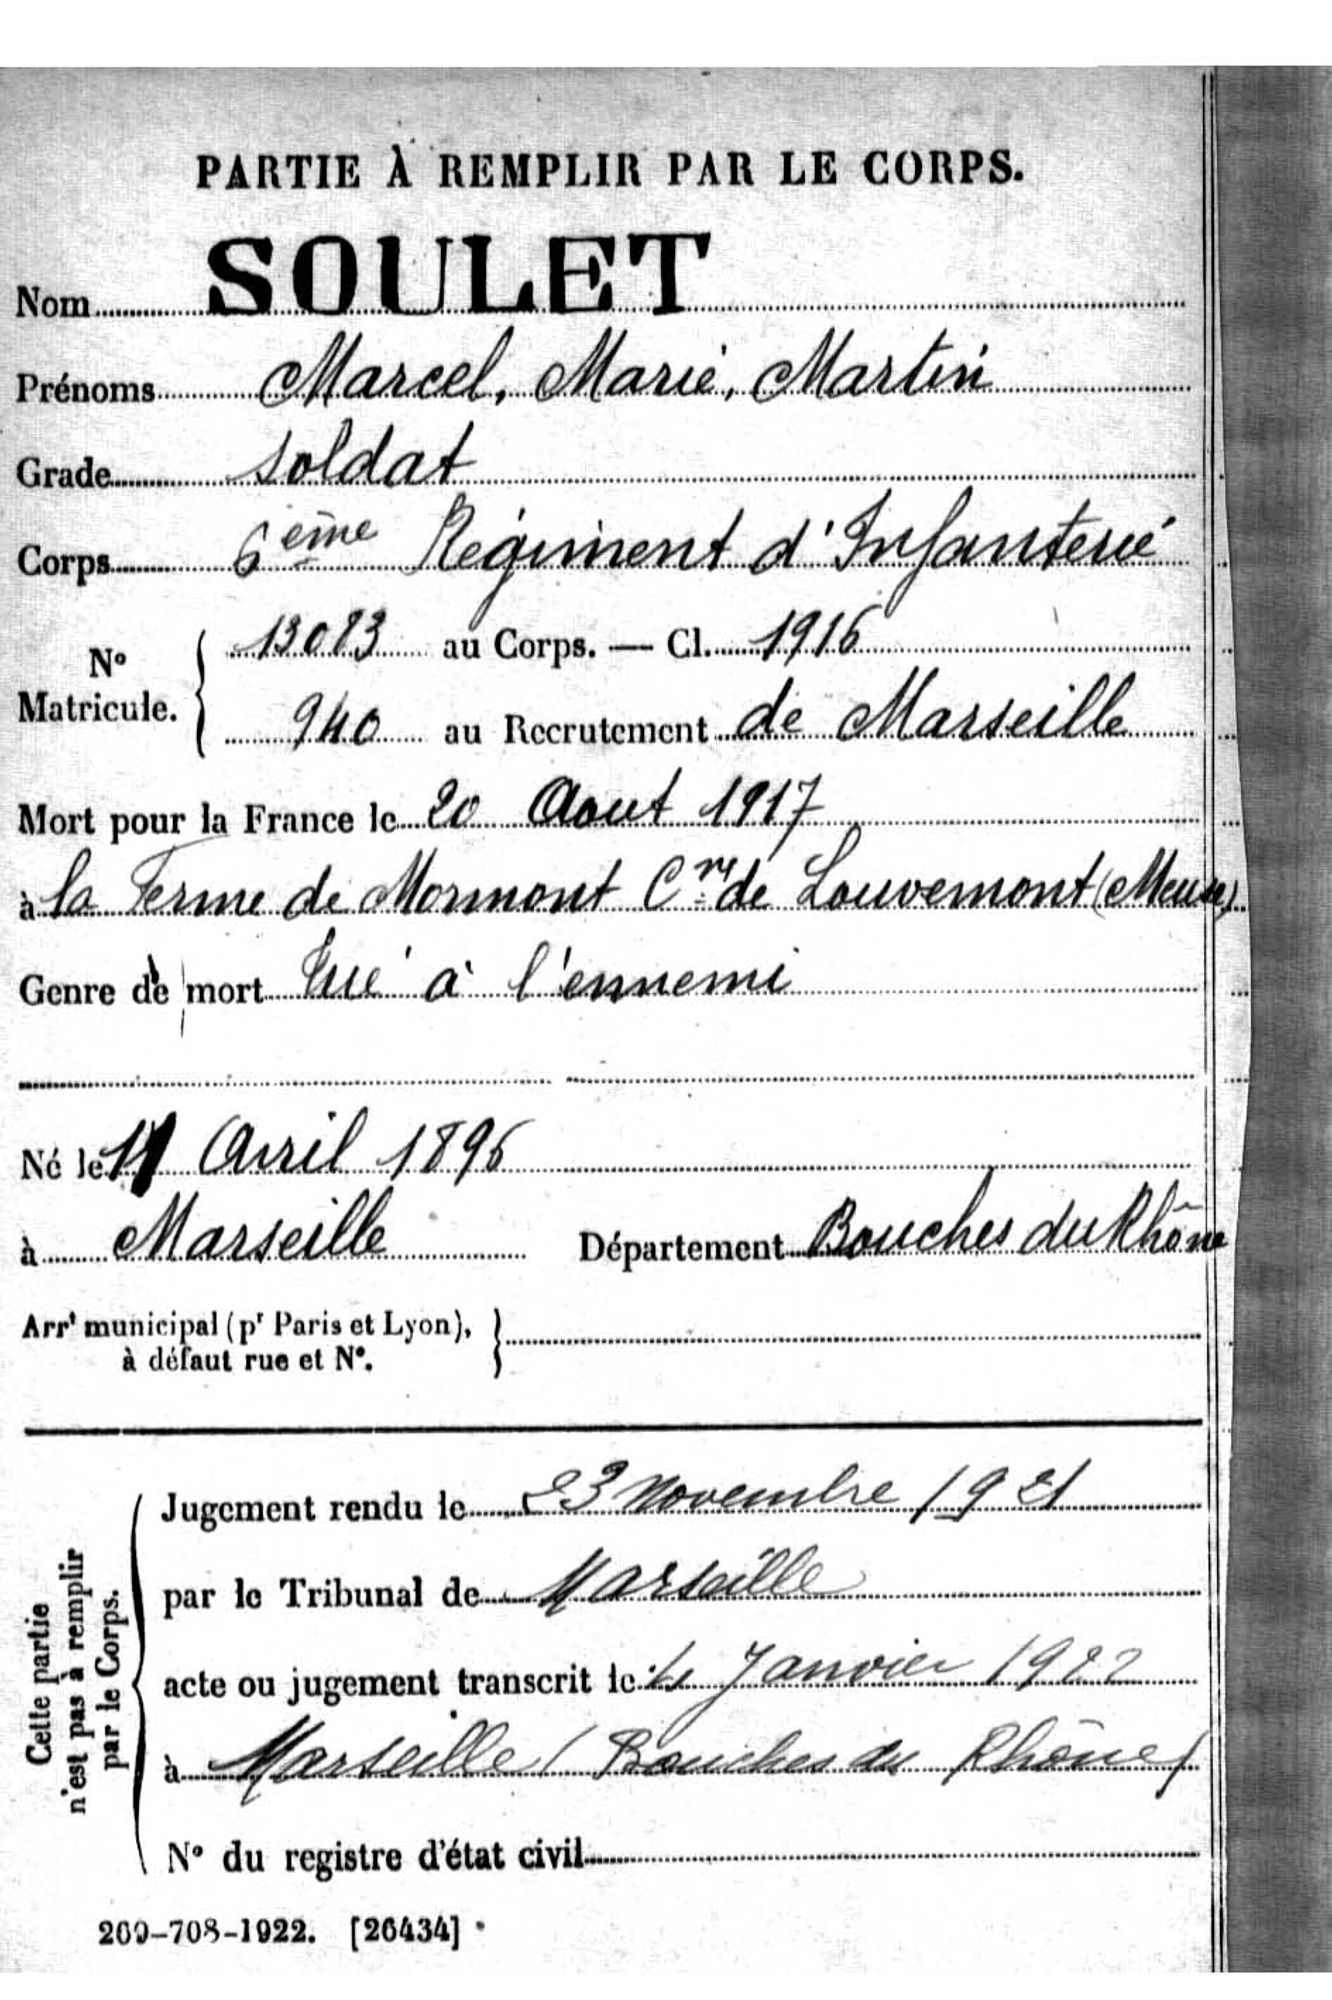 PARTIE À REMPLIR PAR LE CORPS.
Nom SOULET
Prénoms Marcel, Marie, Martin
Grade soldat
Corps 6ème Régiment d'Infanterie
No Matricule. { 13083 au Corps. — Cl. 1916
940 au Recrutement de Marseille
Mort pour la France le 20 Aout 1917
à la Ferme de Mormont Cne de Louvemont (Meuse)
Genre de mort Tué à l'ennemi
Né le 11 Avril 1896
à Marseille Département Bouches du Rhône
Arrt municipal (pr Paris et Lyon),
à défaut rue et No.
Cette partie
n'est pas à remplir
par le Corps.
Jugement rendu le 23 novembre 1921
par le Tribunal de Marseille
acte ou jugement transcrit le 4 Janvier 1922
à Marseille (Bouches du Rhône)
No du registre d'état civil
269-708-1922. [26434]